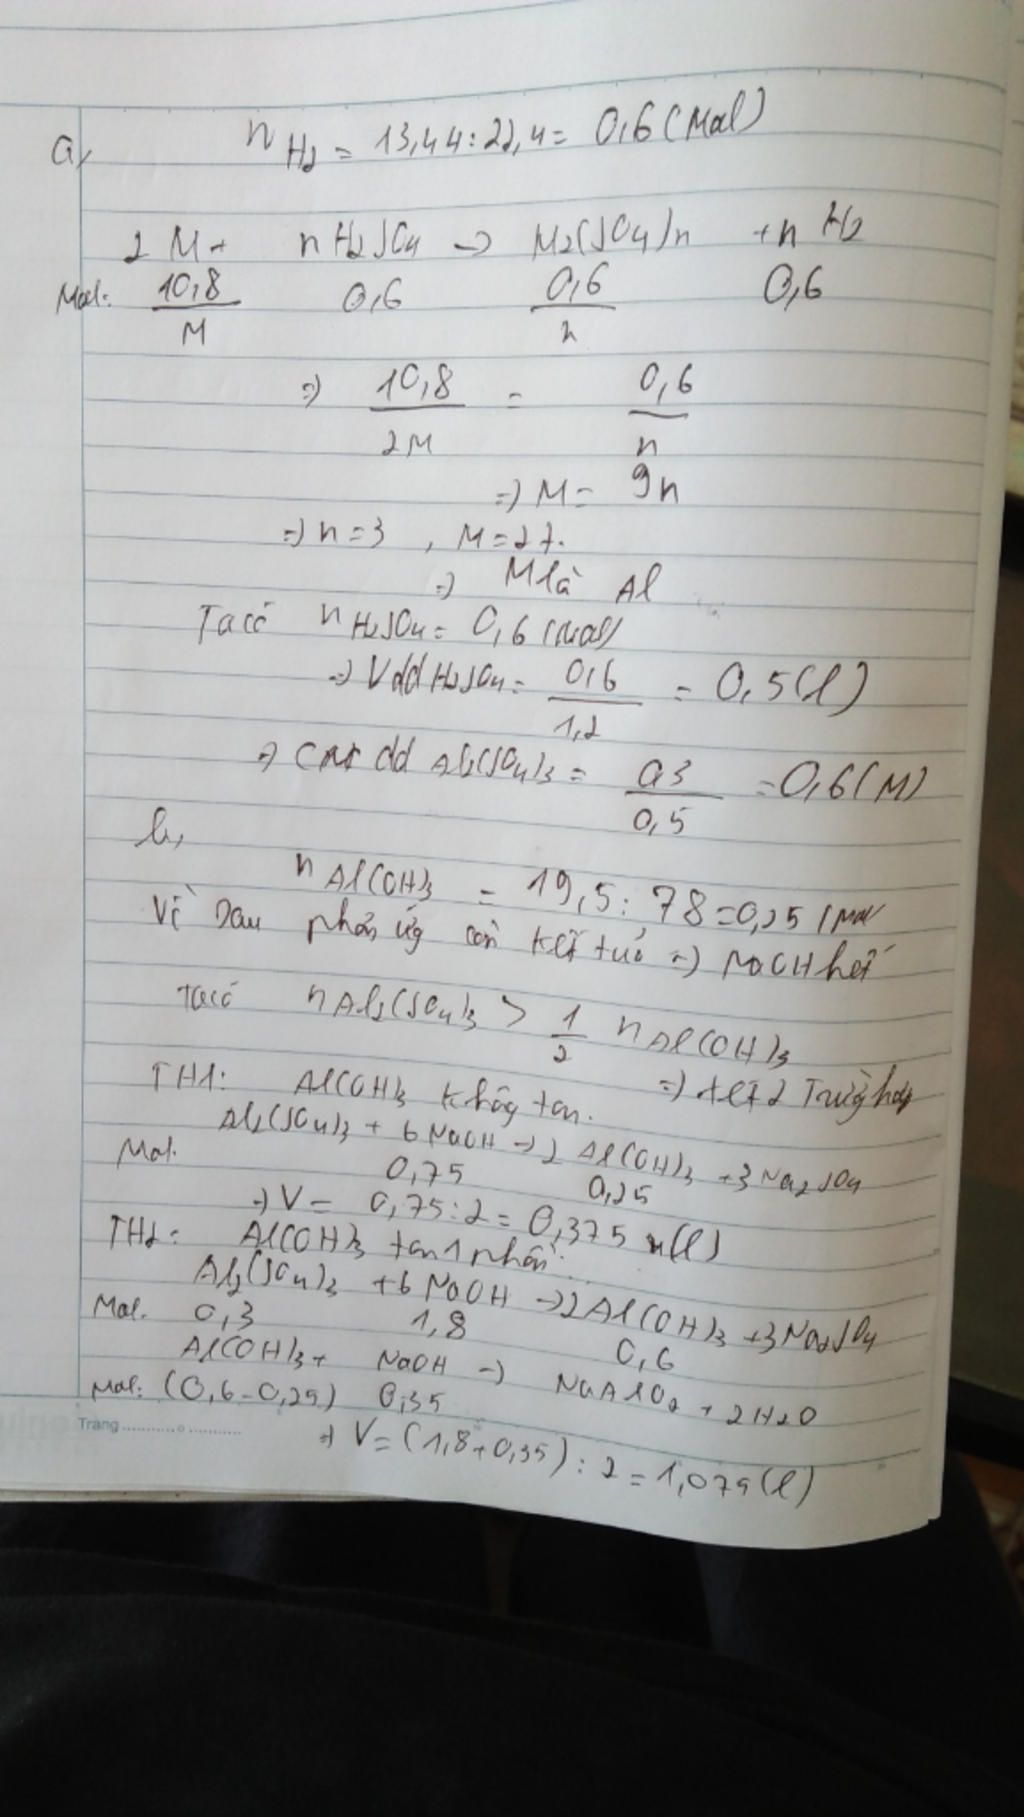 a, n H2 = 13,44 : 22,4 = 0,6 (Mol)
2 M + nH2SO4 → M2(SO4)n + n H2
Mol: 10,8/M 0,6 0,6/n 0,6
=> 10,8/2M = 0,6/n
=> M = 9n
=> n = 3 , M = 27.
=> M là Al
Ta có n H2SO4 = 0,6 (Mol)
=> Vdd H2SO4 = 0,6/1,2 = 0,5 (l)
=> CM dd Al2(SO4)3 = 0,3/0,5 = 0,6 (M)
b,
n Al(OH)3 = 19,5 : 78 = 0,25 (Mol
Vì sau phản ứng còn kết tủa => NaOH hết
Ta có n Al2(SO4)3 > 1/2 n Al(OH)3
=> xét 2 Trường hợp
TH1: Al(OH)3 không tan.
Al2(SO4)3 + 6 NaOH → 2 Al(OH)3 + 3Na2SO4
Mol. 0,75 0,25
=> V = 0,75 : 2 = 0,375 (l)
TH2: Al(OH)3 tan 1 phần.
Al2(SO4)3 + 6 NaOH → 2Al(OH)3 + 3Na2SO4
Mol. 0,3 1,8 0,6
Al(OH)3 + NaOH → NaAlO2 + 2H2O
Mol: (0,6-0,25) 0,35
Trang
=> V = (1,8 + 0,35) : 2 = 1,075 (l)